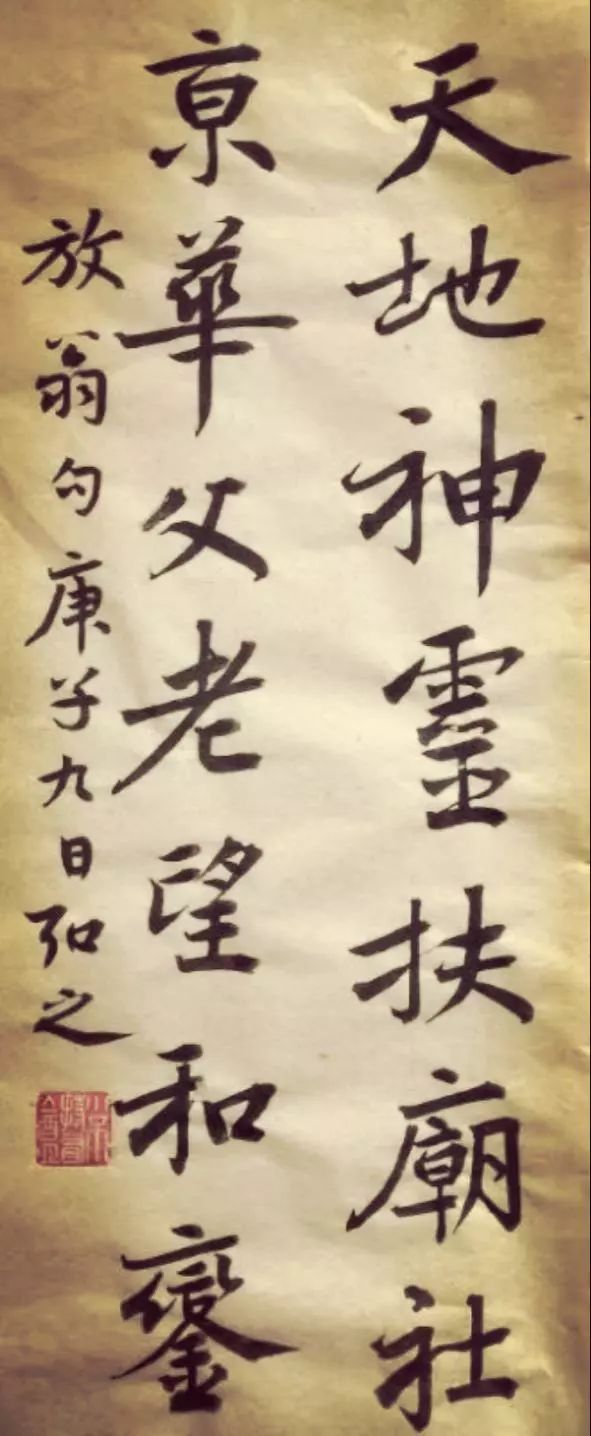 天地神靈扶廟社
京華父老望和鑾
放翁句庚子九日弘之